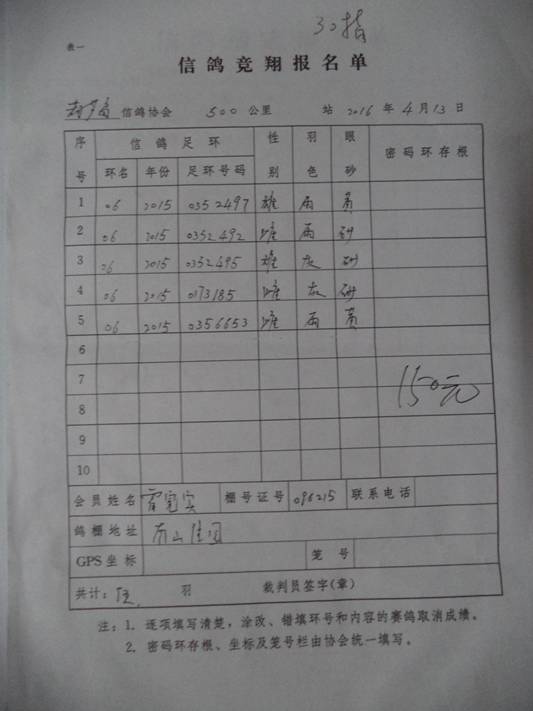 30指
表一
信鸽竞翔报名单
信鸽协会 500 公里 站 2016 年 4 月 13 日
序号 信鸽足环 性别 羽色 眼砂 密码环存根
环名 年份 足环号码
1 06 2015 0352497 雄 雨 黄
2 06 2015 0352492 雌 雨 砂
3 06 2015 0352495 雄 灰 砂
4 06 2015 0173185 雌 灰 砂
5 06 2015 0356653 雌 雨 黄
6
7
150元
8
9
10
会员姓名 霍宪实 棚号证号 096215 联系电话
鸽棚地址 南山佳园
GPS坐标 笼号
共计：伍 羽 裁判员签字(章)
注：1. 逐项填写清楚，涂改、错填环号和内容的赛鸽取消成绩。
2. 密码环存根、坐标及笼号栏由协会统一填写。